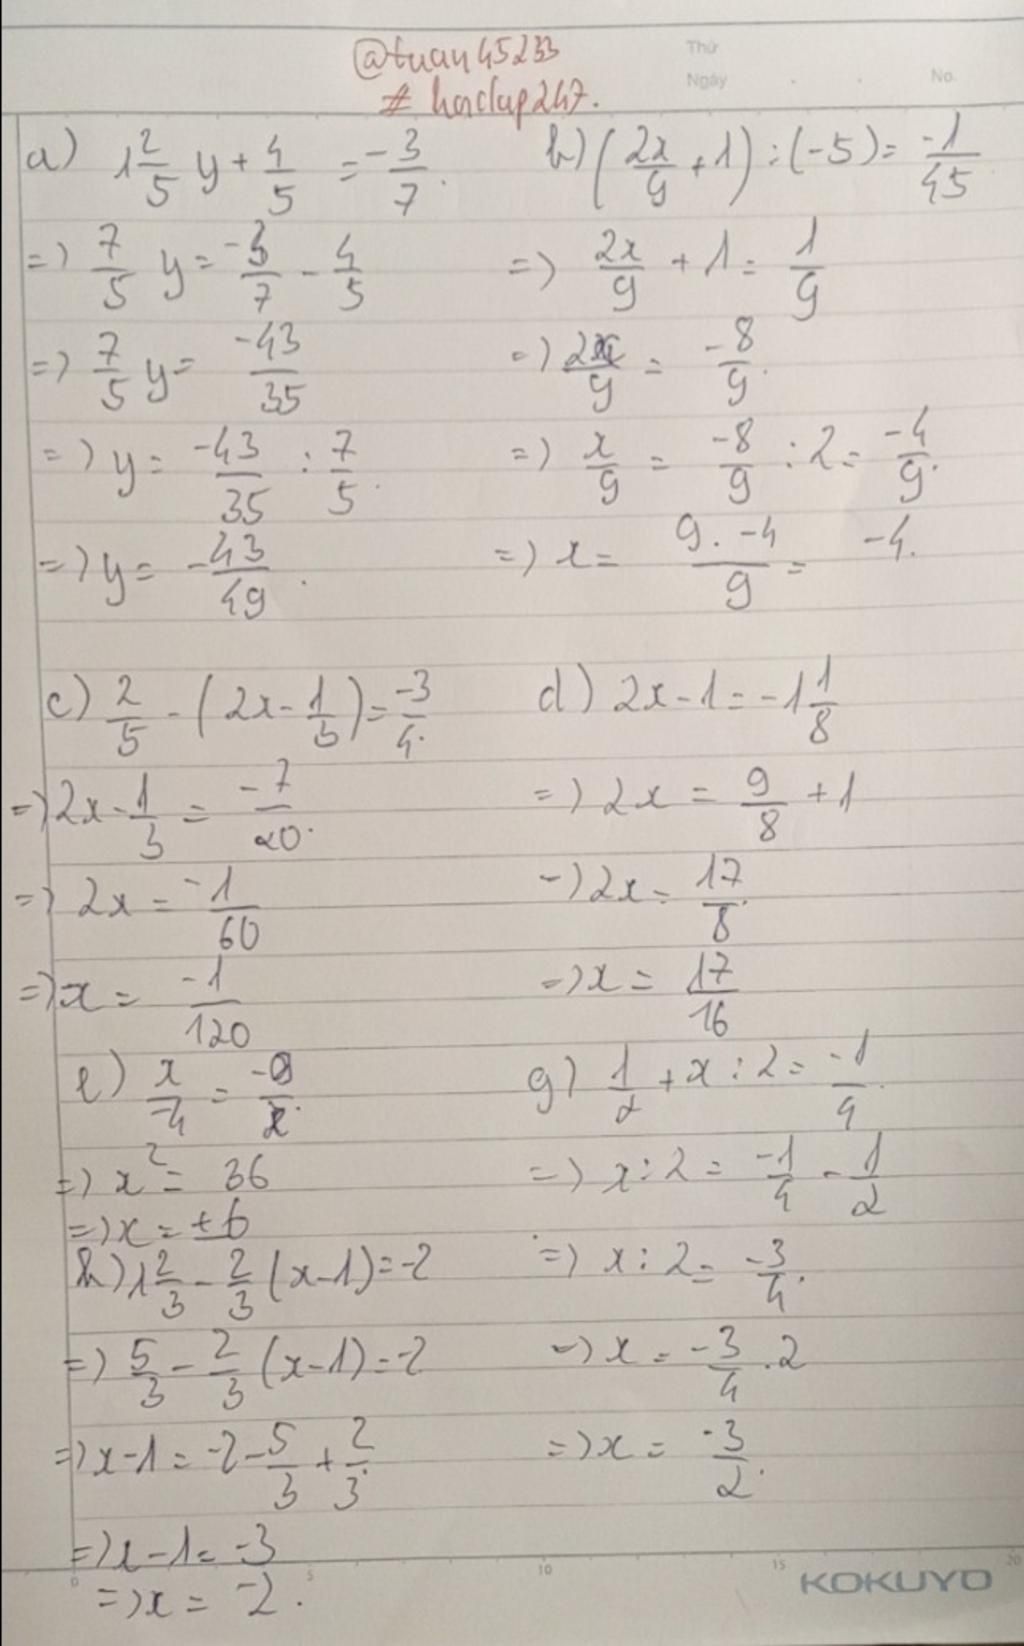 @tuan45233
# hoidap247.
Thứ
Ngày . . No.
a) 1 2/5 y + 4/5 = -3/7.
=> 7/5 y = -3/7 - 4/5
=> 7/5 y = -43/35
=> y = -43/35 : 7/5.
=> y = -43/49.
b) (2x/9 + 1) : (-5) = -1/45
=> 2x/9 + 1 = 1/9
=> 2x/9 = -8/9.
=> x/9 = -8/9 : 2 = -4/9.
=> x = 9. -4/9 = -4.
c) 2/5 - (2x - 1/3) = -3/4.
=> 2x - 1/3 = -7/20.
=> 2x = -1/60
=> x = -1/120
d) 2x - 1 = -1 1/8
=> 2x = 9/8 + 1
=> 2x = 17/8.
=> x = 17/16
e) x/-4 = -9/x.
=> x² = 36
=> x = ±6
g) 1/2 + x : 2 = -1/4.
=> x : 2 = -1/4 - 1/2
=> x : 2 = -3/4.
=> x = -3/4 . 2
=> x = -3/2.
h) 1 2/3 - 2/3 (x - 1) = -2
=> 5/3 - 2/3 (x - 1) = -2
=> x - 1 = -2 - 5/3 + 2/3.
=> x - 1 = -3
=> x = -2.
0 5 10 15 20
KOKUYO